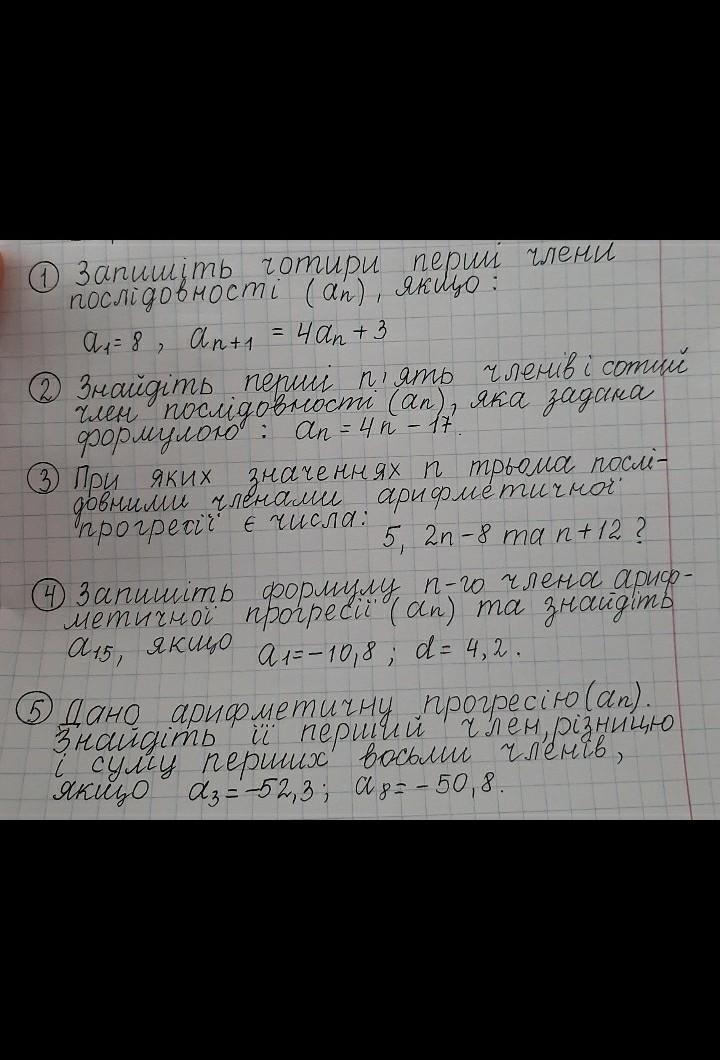 ① Запишіть чотири перші члени
послідовності (aₙ), якщо:
a₁=8, aₙ₊₁ = 4aₙ+3
② Знайдіть перші п'ять членів і сотий
член послідовності (aₙ), яка задана
формулою: aₙ=4n-17.
③ При яких значеннях n трьома послі-
довними членами арифметичної
прогресії є числа:
5, 2n-8 та n+12?
④ Запишіть формулу n-го члена ариф-
метичної прогресії (aₙ) та знайдіть
a₁₅, якщо a₁=-10,8; d=4,2.
⑤ Дано арифметичну прогресію (aₙ).
Знайдіть її перший член, різницю
і суму перших восьми членів,
якщо a₃=-52,3; a₈=-50,8.